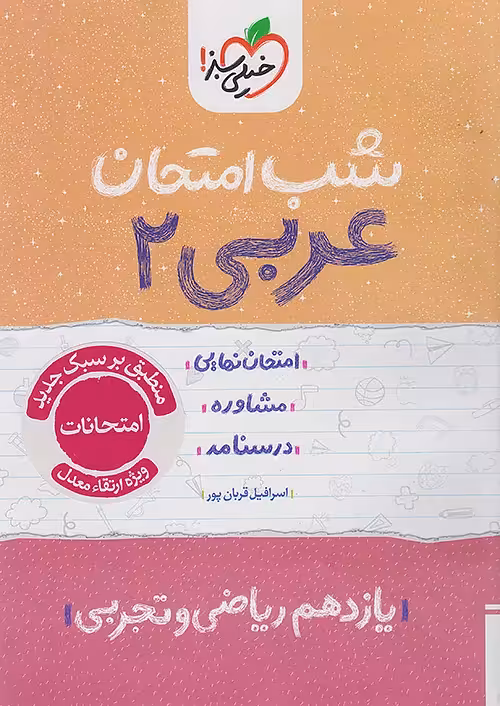 خیلی سبز!
شب امتحان
عربی ۲
امتحان نهایی
مشاوره
درسنامه
اسرافیل قربان پور
منطبق بر سبک جدید
امتحانات
ویژه ارتقاء معدل
یازدهم ریاضی و تجربی